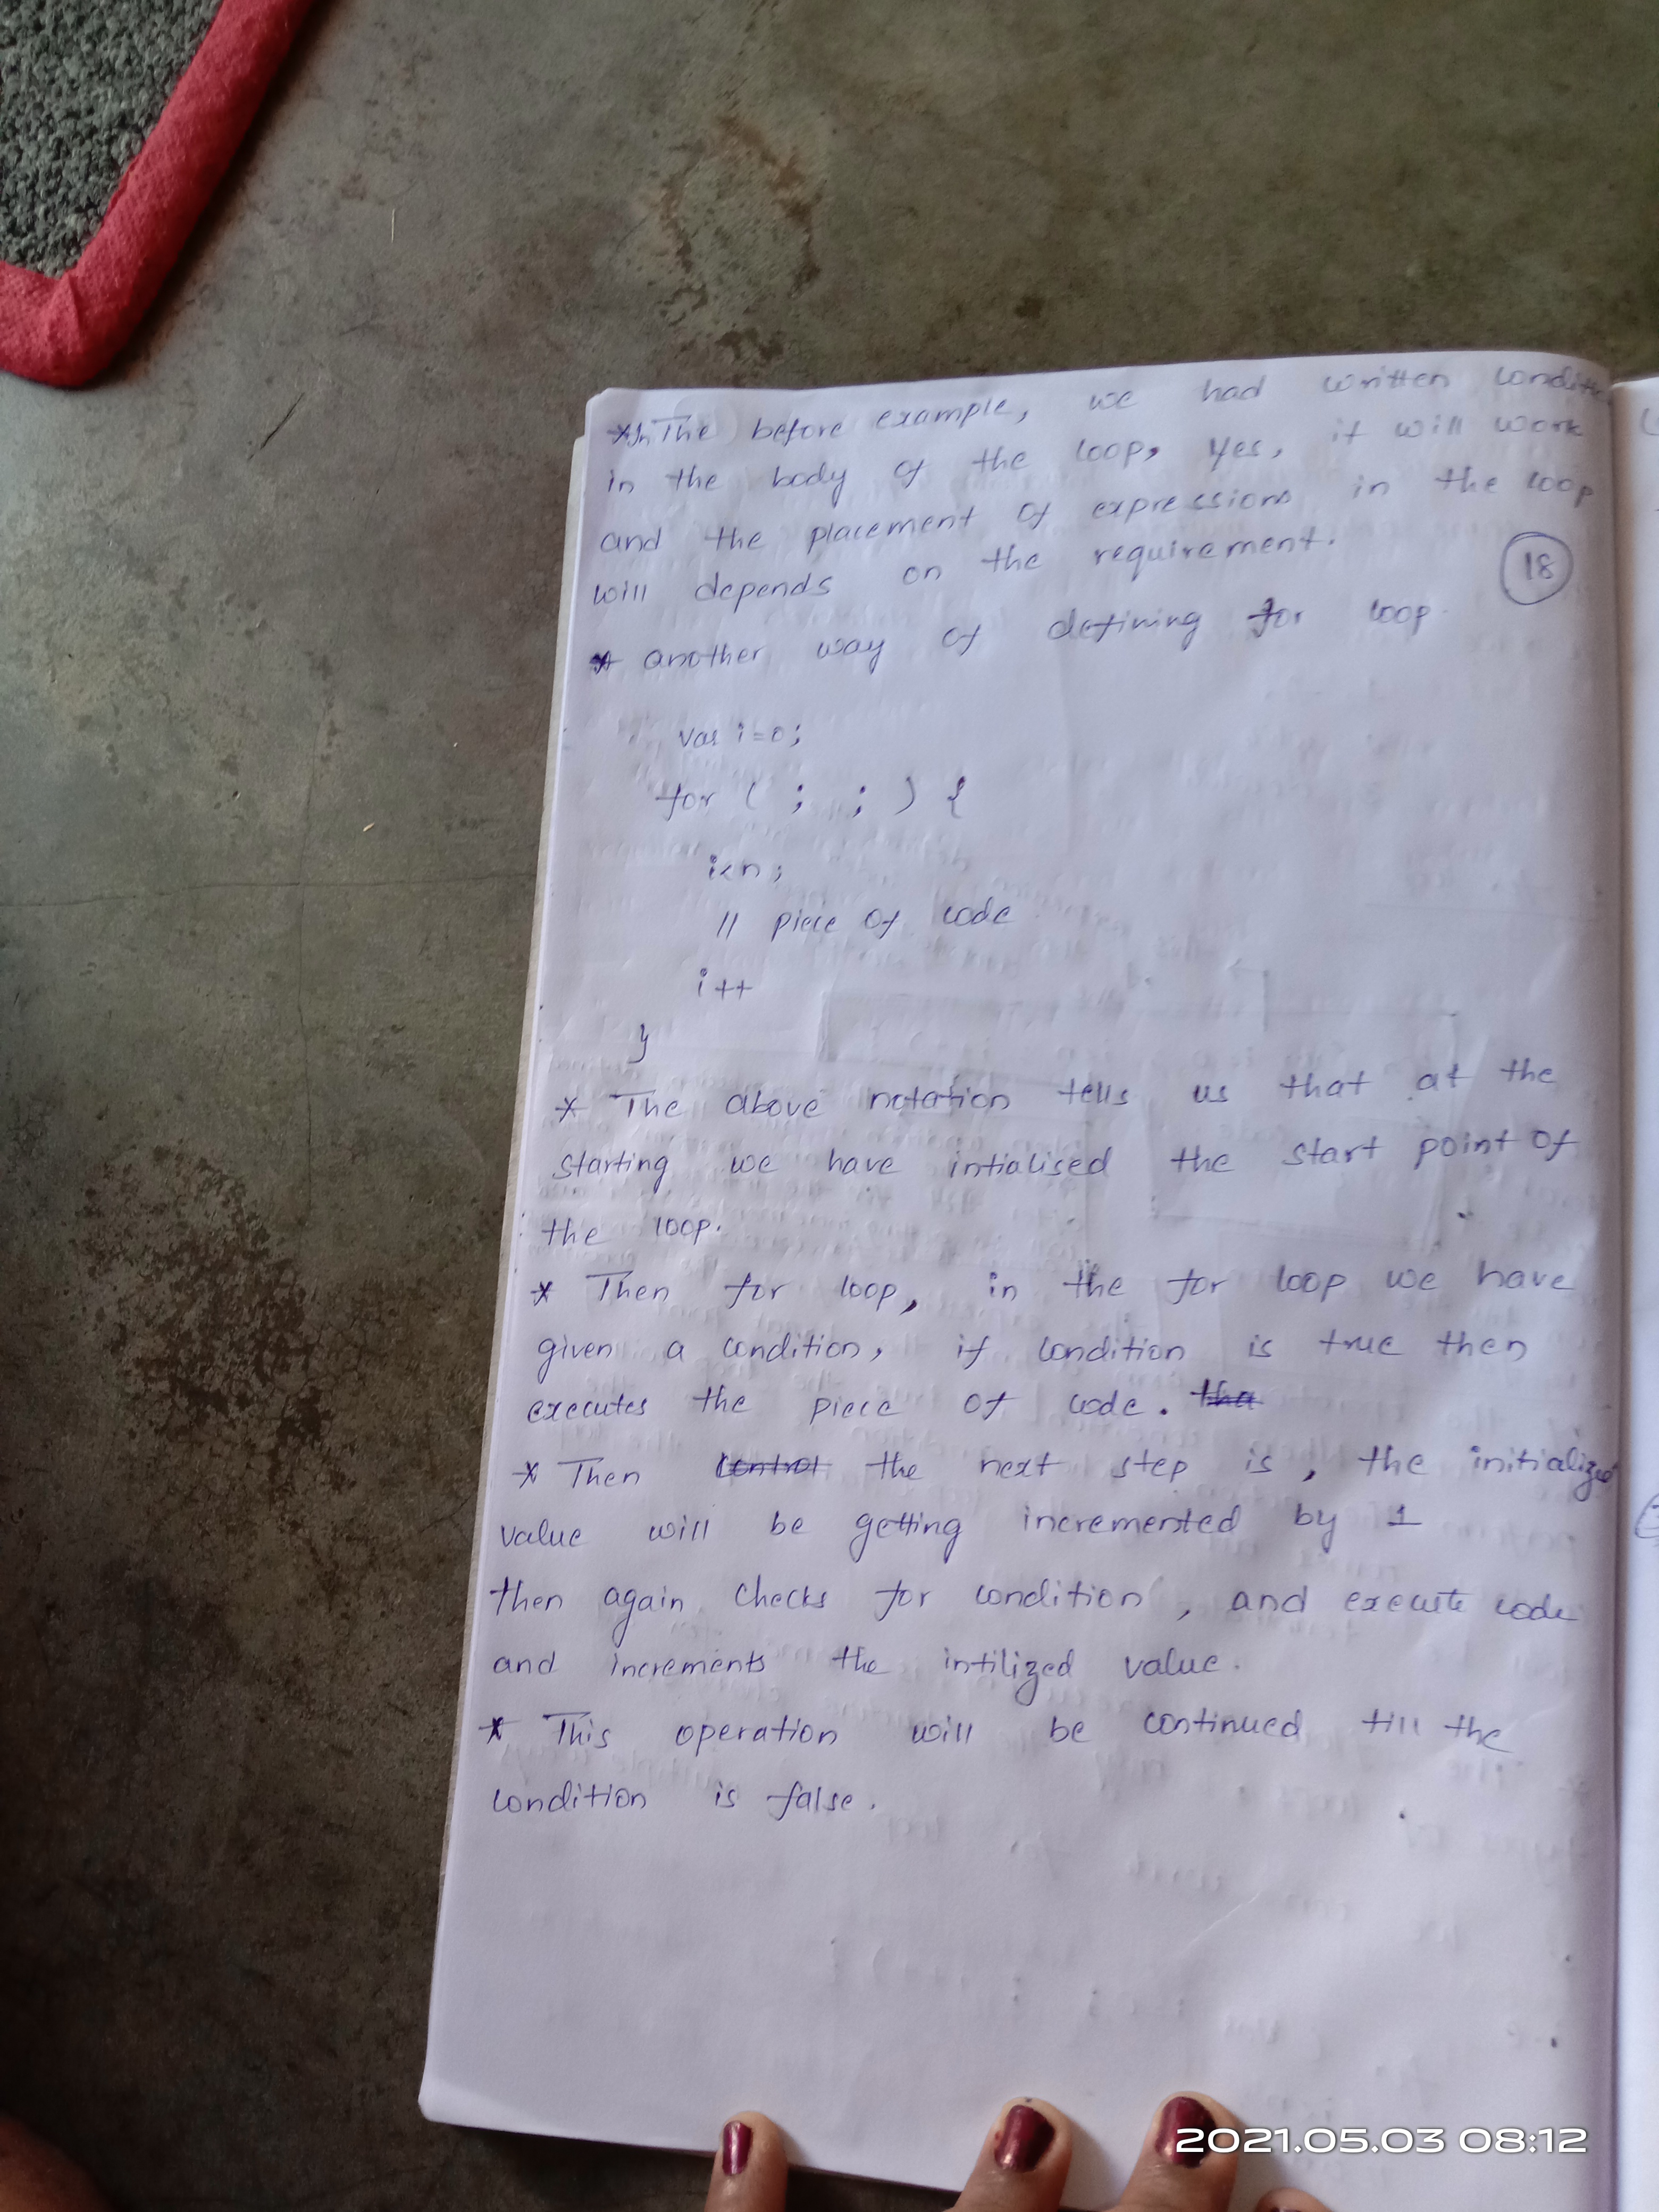 *In The before example, we had written conditi
in the body of the loop, yes, it will work
and the placement of expressions in the loop
will depends on the requirement.
18
* another way of defining for loop.
var i=0;
for ( ; ; ) {
i<n;
// piece of code
i++
}
* The above notation tells us that at the
starting we have intialised the start point of
the loop.
* Then for loop, in the for loop we have
given a condition, if condition is true then
executes the piece of code. tha
* Then control the next step is, the initialize
value will be getting incremented by 1
then again checks for condition, and execute code
and increments the intilized value.
* This operation will be continued till the
condition is false.
2021.05.03 08:12